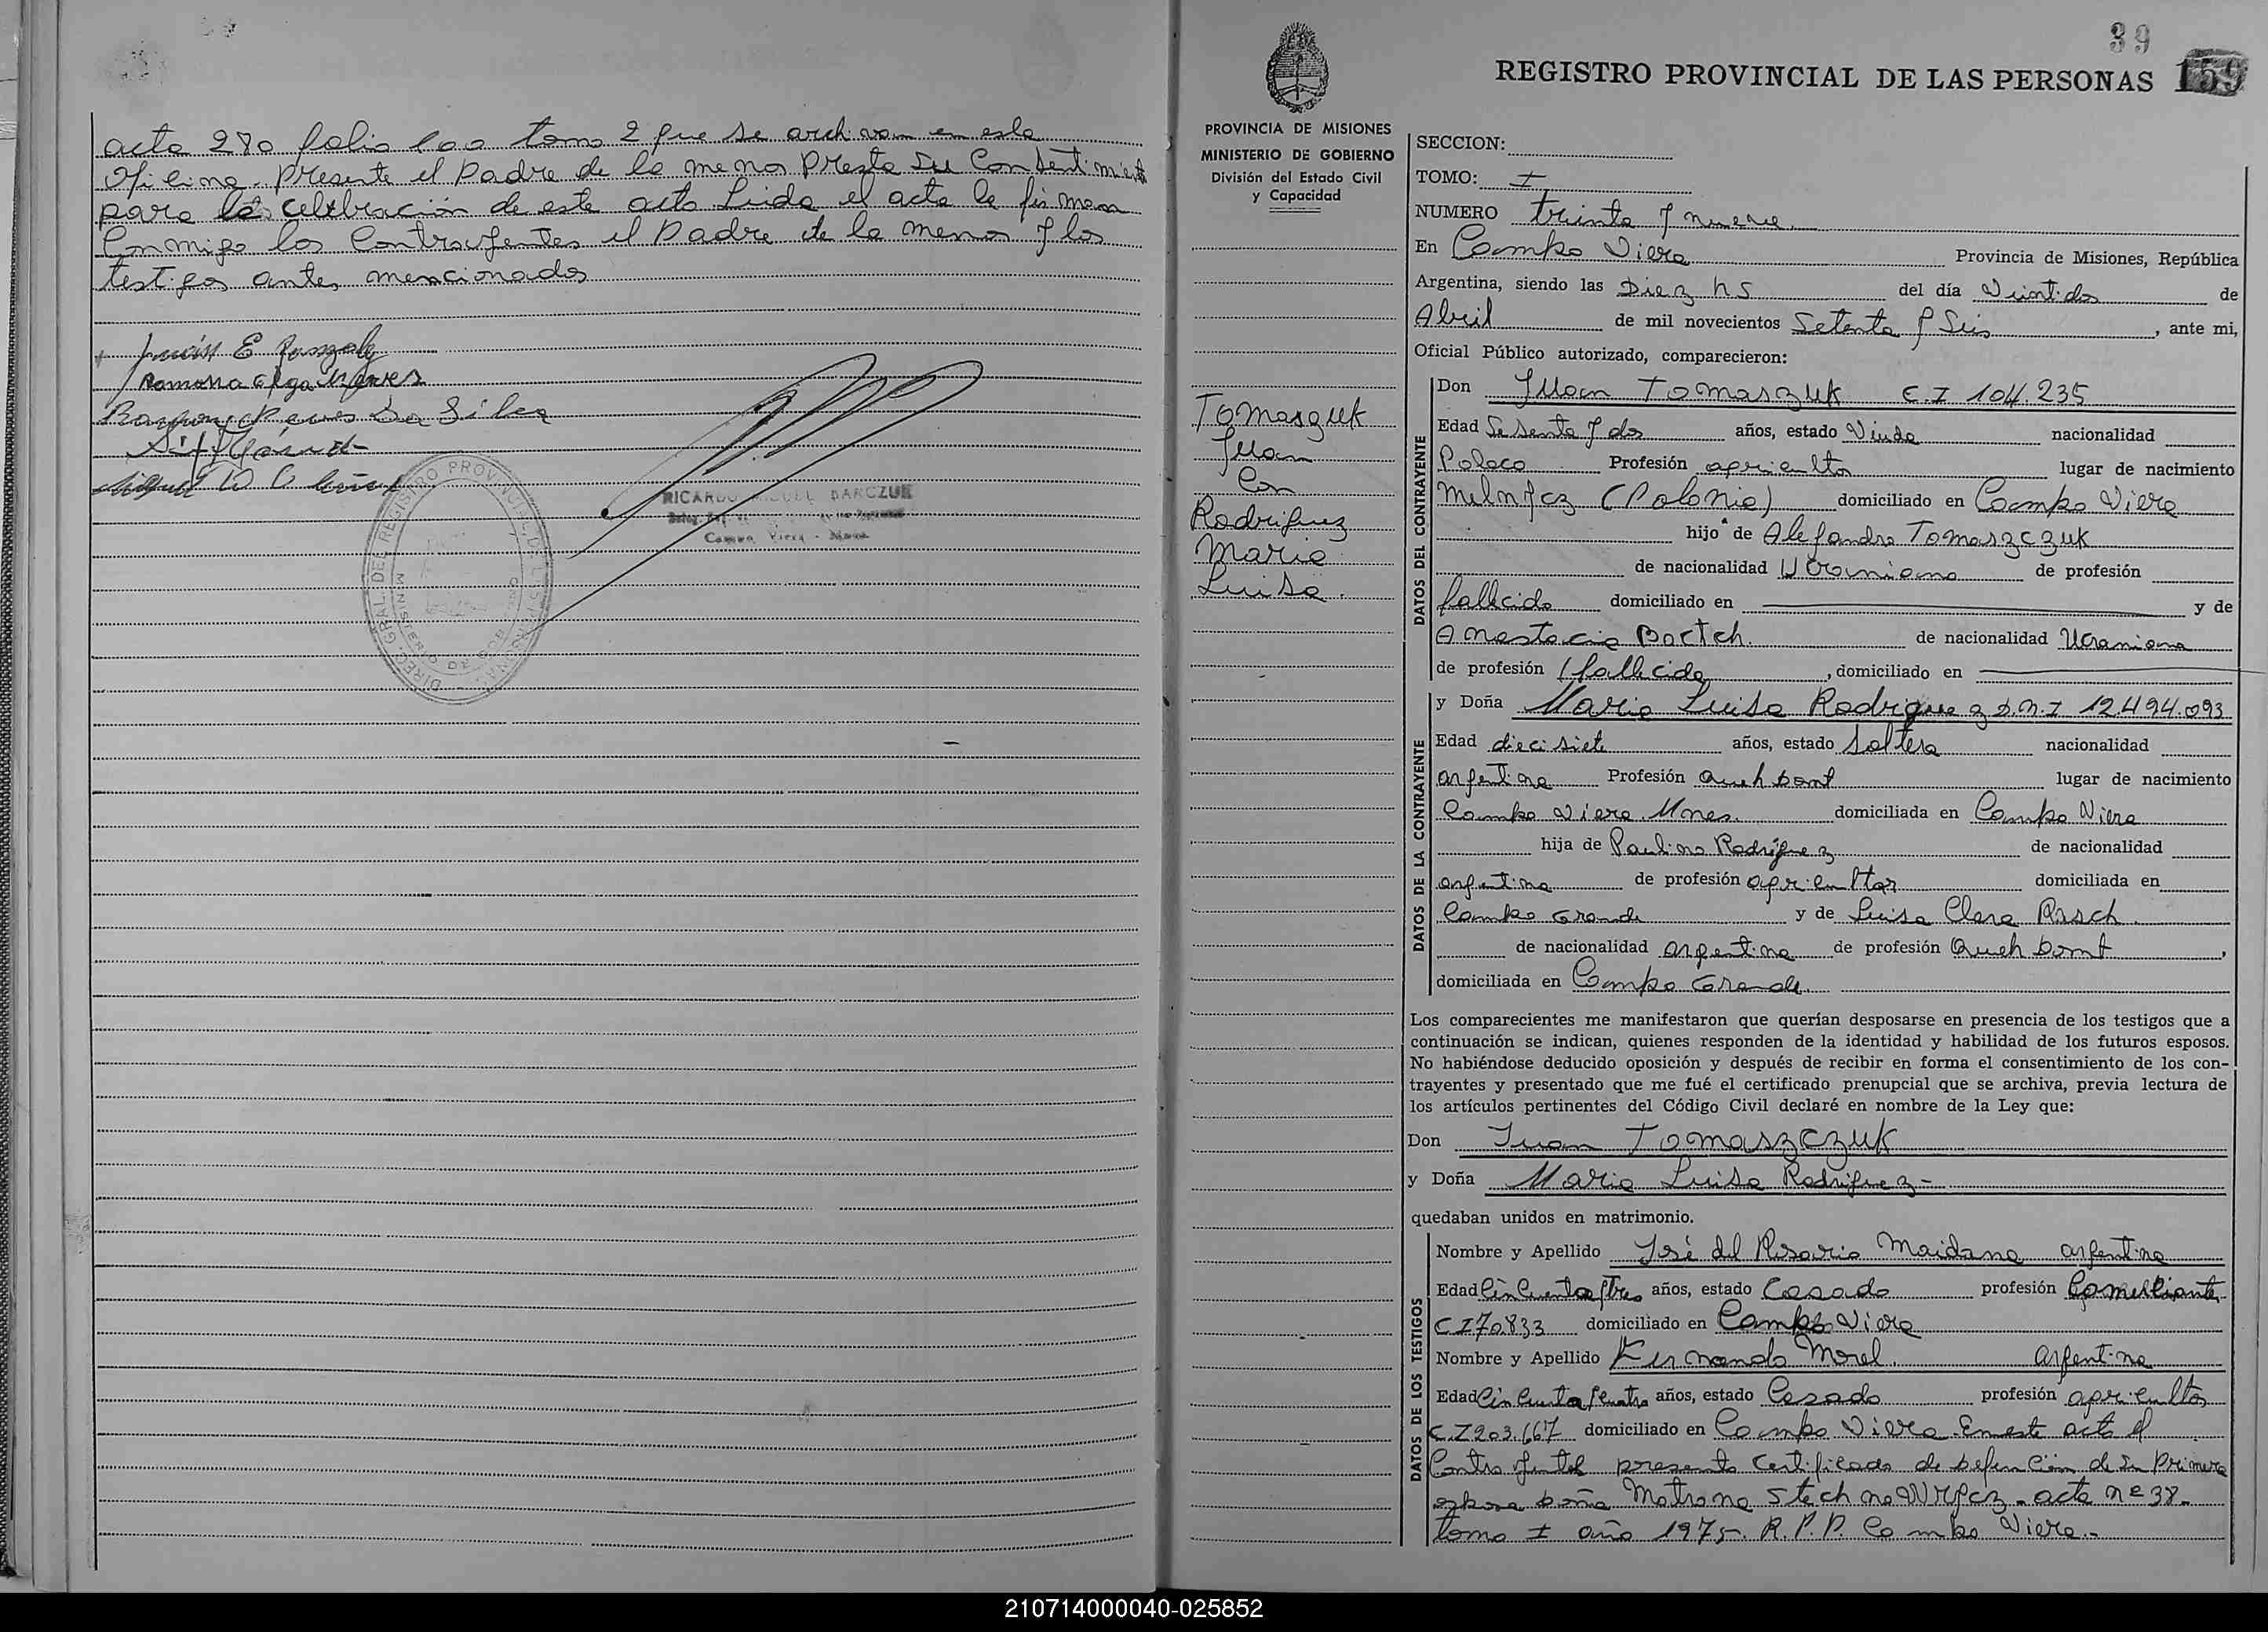 acta 280 folio 100 tomo 2 que se archivan en esta
oficina. Presente el Padre de la menor Presta su Consentimient
para la celebración de este acto Leida el acta la firman
Conmigo los Contrayentes el Padre de la menor y los
testigos antes mencionados
Ramona
Da Silva
DIREC. GRAL. DEL REGISTRO PROVINCIAL DE LAS PERSONAS
MINISTERIO DE GOB
RICARDO MIGUEL DARCZUK
Campo Viera - Mnes.
39
REGISTRO PROVINCIAL DE LAS PERSONAS 159
PROVINCIA DE MISIONES
MINISTERIO DE GOBIERNO
División del Estado Civil
y Capacidad
Tomaszuk
Juan
Con
Rodriguez
Maria
Luisa.
SECCION:
TOMO: I
NUMERO treinta y nueve
En Campo Viera Provincia de Misiones, República
Argentina, siendo las Diez hs del día Veintidos de
Abril de mil novecientos Setenta y Seis, ante mi,
Oficial Público autorizado, comparecieron:
DATOS DEL CONTRAYENTE
Don Juan Tomaszuk C.I 104.235
Edad Sesenta y dos años, estado Viudo nacionalidad
Polaco Profesión agricultor lugar de nacimiento
Melnycz (Polonia) domiciliado en Campo Viera
hijo de Alejandro Tomaszczuk
de nacionalidad Ucraniano de profesión
fallecido domiciliado en y de
Anastacia Bartch. de nacionalidad Ucraniana
de profesión fallecida, domiciliado en
DATOS DE LA CONTRAYENTE
y Doña Maria Luisa Rodriguez D.N.I 12.494.093
Edad diecisiete años, estado Soltera nacionalidad
argentina Profesión Queh Domt lugar de nacimiento
Campo Viera Mnes. domiciliada en Campo Viera
hija de Paulino Rodriguez de nacionalidad
argentina de profesión agricultor domiciliada en
Campo Grande y de Luisa Clara Rasch.
de nacionalidad argentina de profesión Queh Domt,
domiciliada en Campo Grande.
Los comparecientes me manifestaron que querían desposarse en presencia de los testigos que a
continuación se indican, quienes responden de la identidad y habilidad de los futuros esposos.
No habiéndose deducido oposición y después de recibir en forma el consentimiento de los con-
trayentes y presentado que me fué el certificado prenupcial que se archiva, previa lectura de
los artículos pertinentes del Código Civil declaré en nombre de la Ley que:
Don Juan Tomaszczuk
y Doña Maria Luisa Rodriguez-
quedaban unidos en matrimonio.
DATOS DE LOS TESTIGOS
Nombre y Apellido José del Rosario Maidana argentina
Edad Cincuenta y tres años, estado Casado profesión Comerciante
C I 70.833 domiciliado en Campo Viera
Nombre y Apellido Fernando Morel. argentina
Edad Cincuenta y cuatro años, estado Casado profesión agricultor
C.I 203.667 domiciliado en Campo Viera. En este acto el
Contrayente presenta Certificado de Defunción de su Primera
esposa Doña Matrona Stechnawrycz. acta nº 38-
tomo I año 1975. R.P.P. Campo Viera.-
210714000040-025852